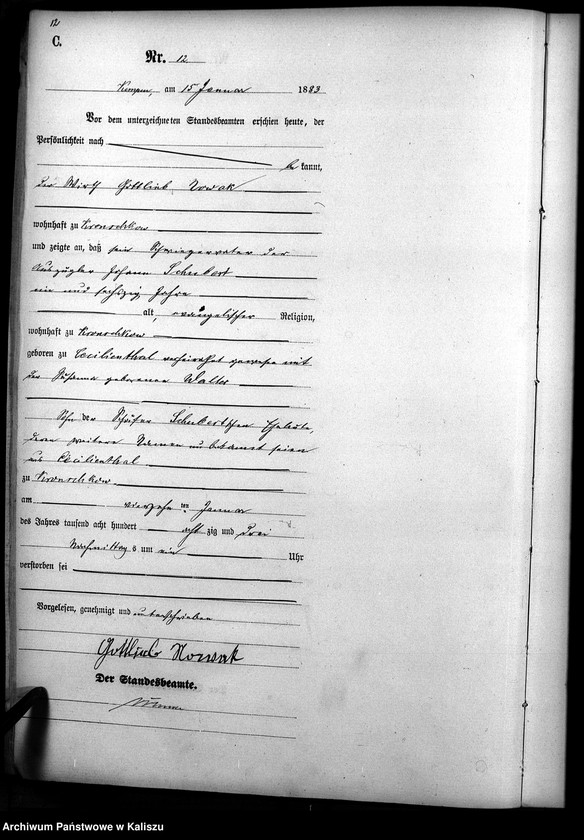 12
C.
Nr. 12.
Kempen, am 15 Januar 1883
Vor dem unterzeichneten Standesbeamten erschien heute, der
Persönlichkeit nach
be kannt,
der Wirth Gottlieb Nowak
wohnhaft zu Kronschkow
und zeigte an, daß sein Schwiegervater der
Auszügler Johann Schubert
ein und sechszig Jahre
alt, evangelischer Religion,
wohnhaft zu Kronschkow
geboren zu Cecilienthal verheirathet gewesen mit
der Susanna geborenen Walter
Sohn der Schäfer Schubertschen Eheleute,
deren weitere Namen unbekannt seien
aus Cecilienthal
zu Kronschkow
am vierzehn ten Januar
des Jahres tausend acht hundert acht zig und drei
Nachmittag s um ein Uhr
verstorben sei
Vorgelesen, genehmigt und unterschrieben
Gottlieb Nowak
Der Standesbeamte.
Archiwum Państwowe w Kaliszu